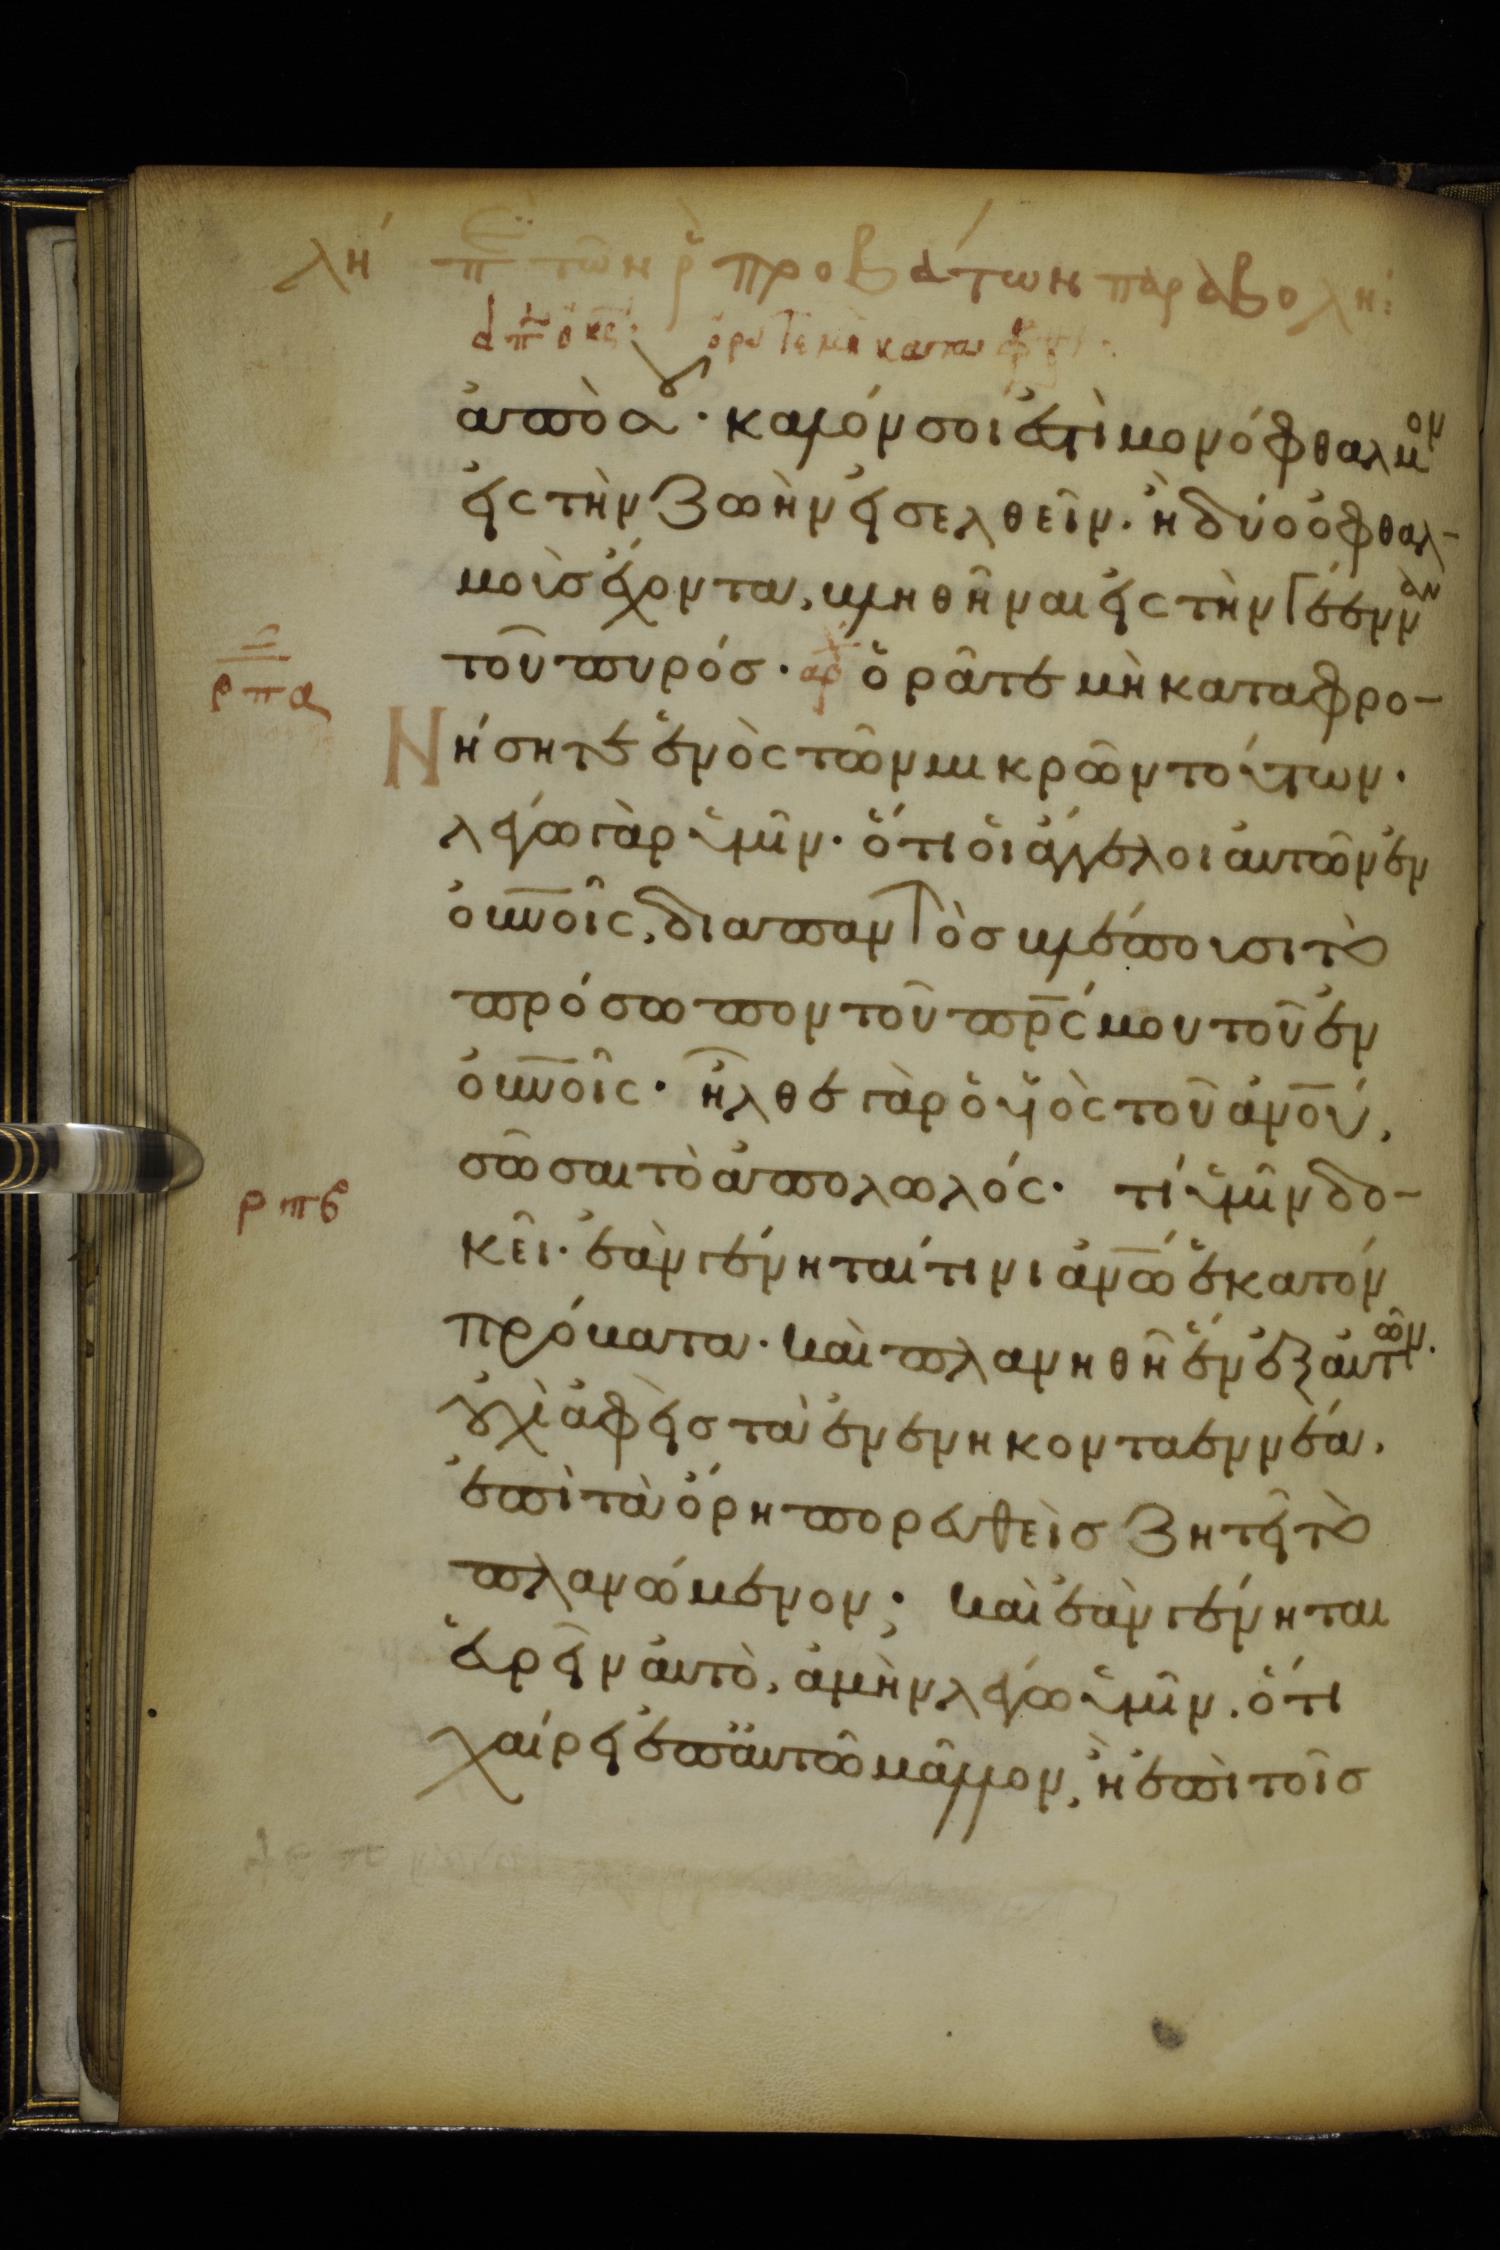 λη περὶ τῶν ρ̄ προβάτων παραβολή:
εἶπ ὁ κς: ὁρᾶτε μὴ καταφρ
ἀπὸ σοῦ· καλόν σοι ἐστὶ μονόφθαλμον
εἰς τὴν ζωὴν εἰσελθεῖν. ἢ δύο ὀφθαλ-
μοὺσ ἔχοντα, βληθῆναι εἰς τὴν γέενναν
τοῦ πυρόσ· αρχ ὁρᾶτε μὴ καταφρο-
ρπα
νήσητε ἑνὸς τῶν μικρῶν τούτων.
λέγω γὰρ ὑμῖν· ὅτι οἱ ἄγγελοι αὐτῶν ἐν
οὐνοῖς, διαπαντὸσ βλέπουσι τὸ
πρόσωπον τοῦ πρς μου τοῦ ἐν
οὐνοῖς· ἦλθε γὰρ ὁ υἱὸς τοῦ ἀνου,
σῶσαι τὸ ἀπολωλός· τί ὑμῖν δο-
ρπβ
κεῖ· ἐὰν γένηται τινι ἀνω ἑκατόν
πρόβατα· καὶ πλανηθῆ ἓν ἐξ αὐτῶν.
οὐχὶ ἀφεὶσ τὰ ἐνενηκονταεννέα,
ἐπὶ τὰ ὄρη πορευθεὶσ ζητεῖ τὸ
πλανώμενον; καὶ ἐὰν γένηται
εὑρεῖν αὐτὸ, ἀμὴν λέγω ὑμῖν. ὅτι
χαίρει ἐπ αὐτῶ μᾶλλον, ἢ ἐπὶ τοῖσ